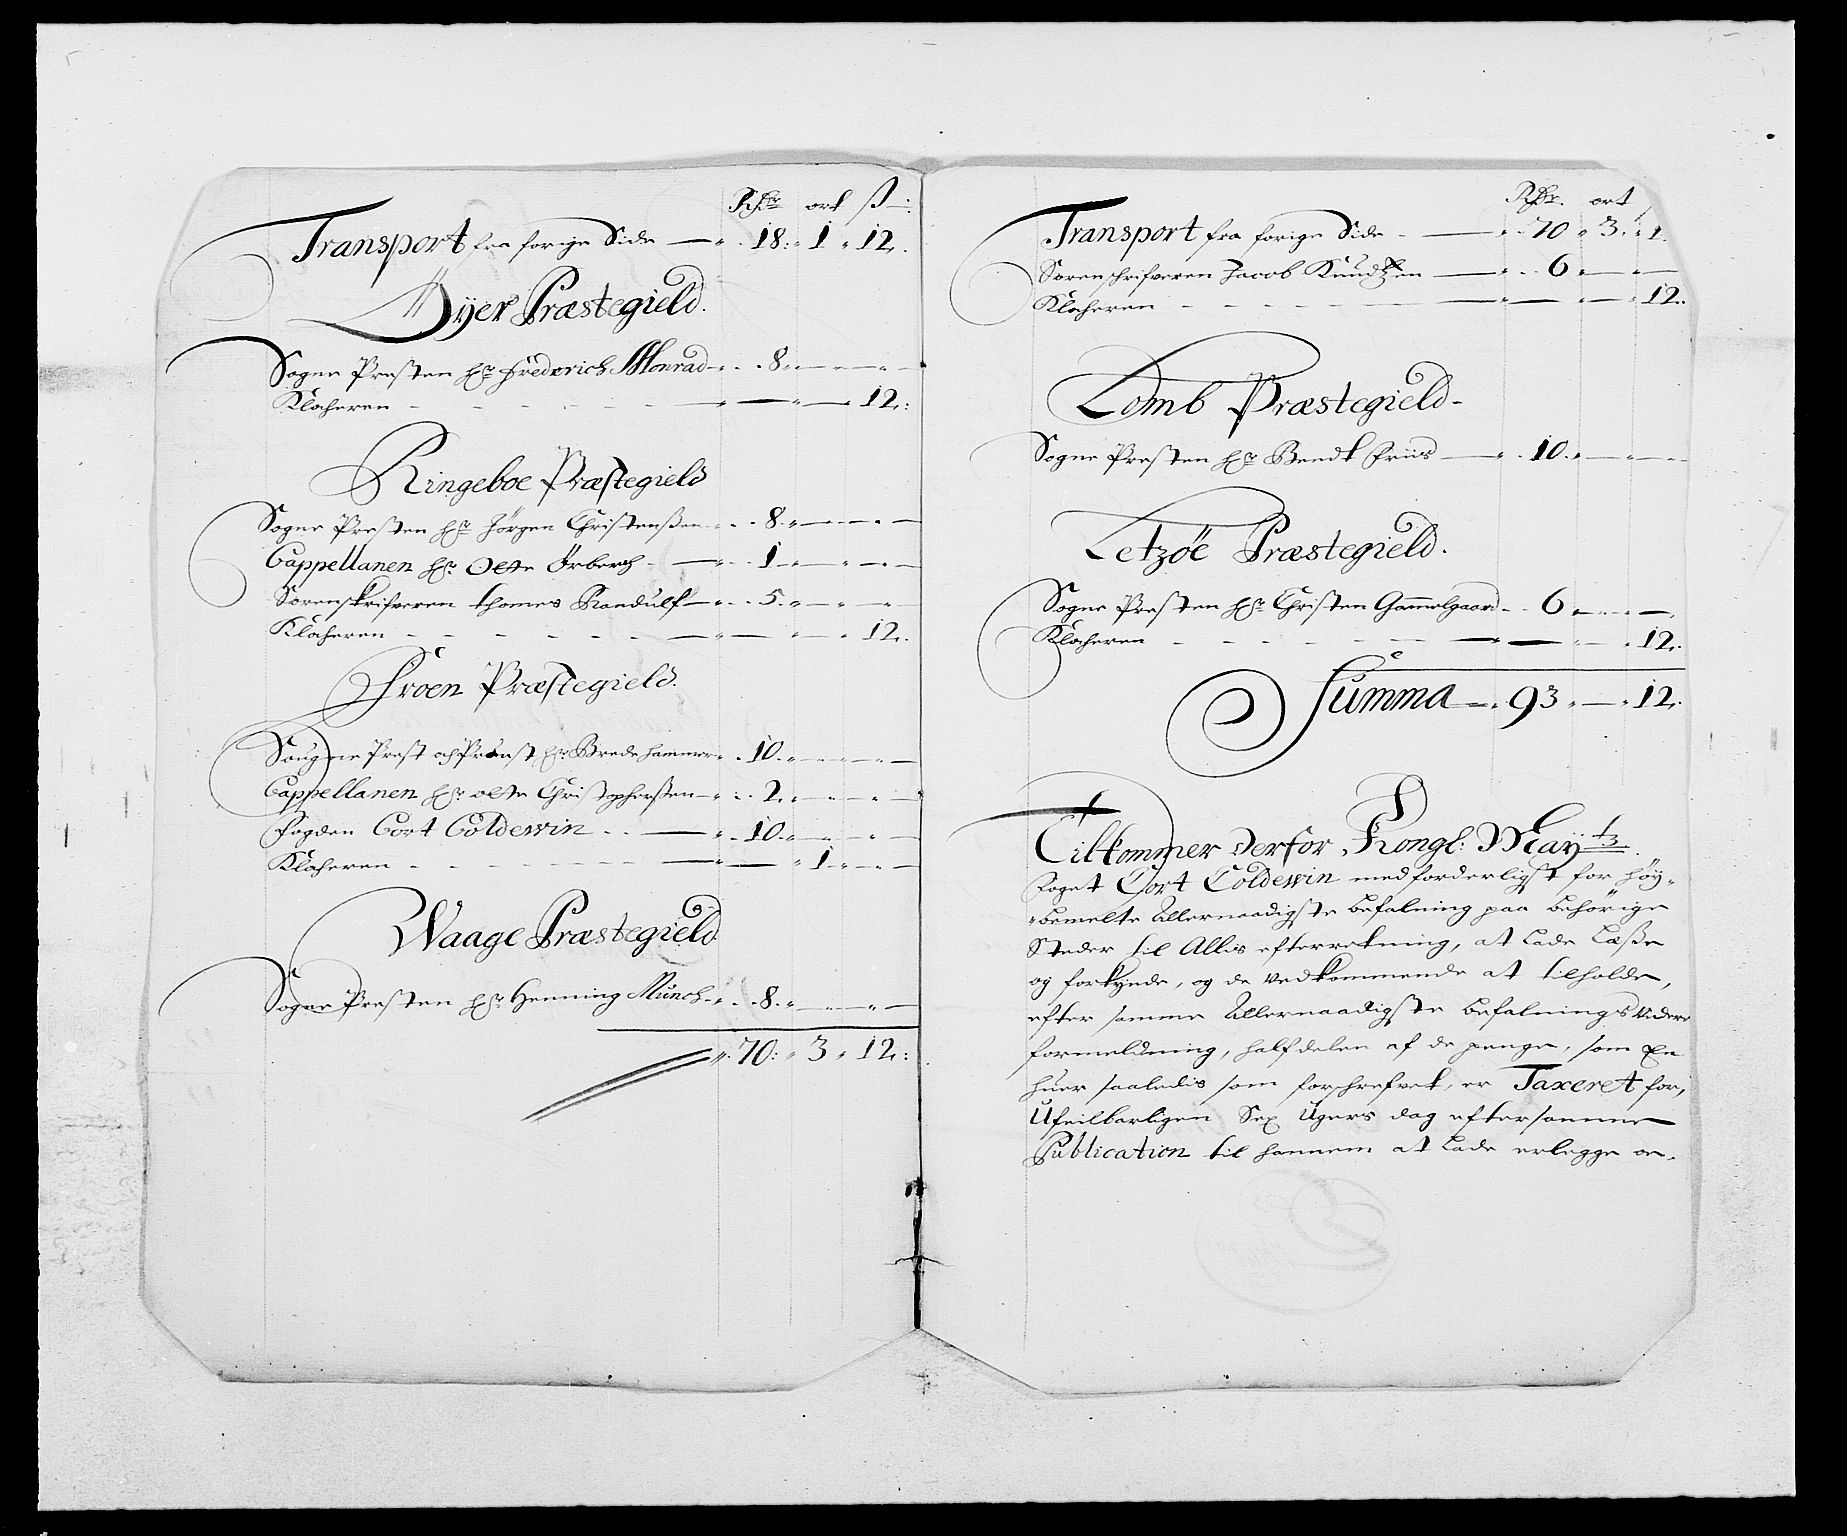 Rdr ort ß
Transport fra forige Side 18 1 12
Öÿer Præstegield.
Sogne Presten hr Frederich Monrad 8
Klocheren 12
Ringeboe Præstegield
Sogne Presten hr Jörgen Christenßen 8
Cappellanen hr Olle 1
Sorenskrifveren thomes Randulf 5
Klocheren 12
Froen Præstegield
Sougne Prest och Provst hr Brede hammer 10
Cappellanen hr olle Christopherßen 2
Fogden Cort Coldewin 10
Klocheren 1
Waage Præstegield
Sogne Presten hr Henning Münch 8
70 3 12
Rdr. ort
Transport fra forige Side 70 3 1
Sorenschrifveren Jacob Knudtzen 6
Klocheren 12
Lomb Præstegield
Sogne Presten hr Bendt Friis 10
Letzøe Præstegield.
Sogne Presten hr Christen Gammelgaard 6
Klocheren 12
Summa 93 12
Tilkommer derfor Kongl: Mayts
Foget Cort Coldewin medforderligst for höy-
bemelte Allernaadigste befalning paa behörige
Steder til Allis efterretning, at lade Læße
og forkynde, og de vedkommende at tilholde,
efter samme Allernaadigste befalnings videre
formeldning, halfdelen af de penge, som En
huer saaledis som forschrefvet, er Taxeret for,
Ufeilbarligen Sex Ugers dag efter samme
Publication til hannem at Lade erlegge oc